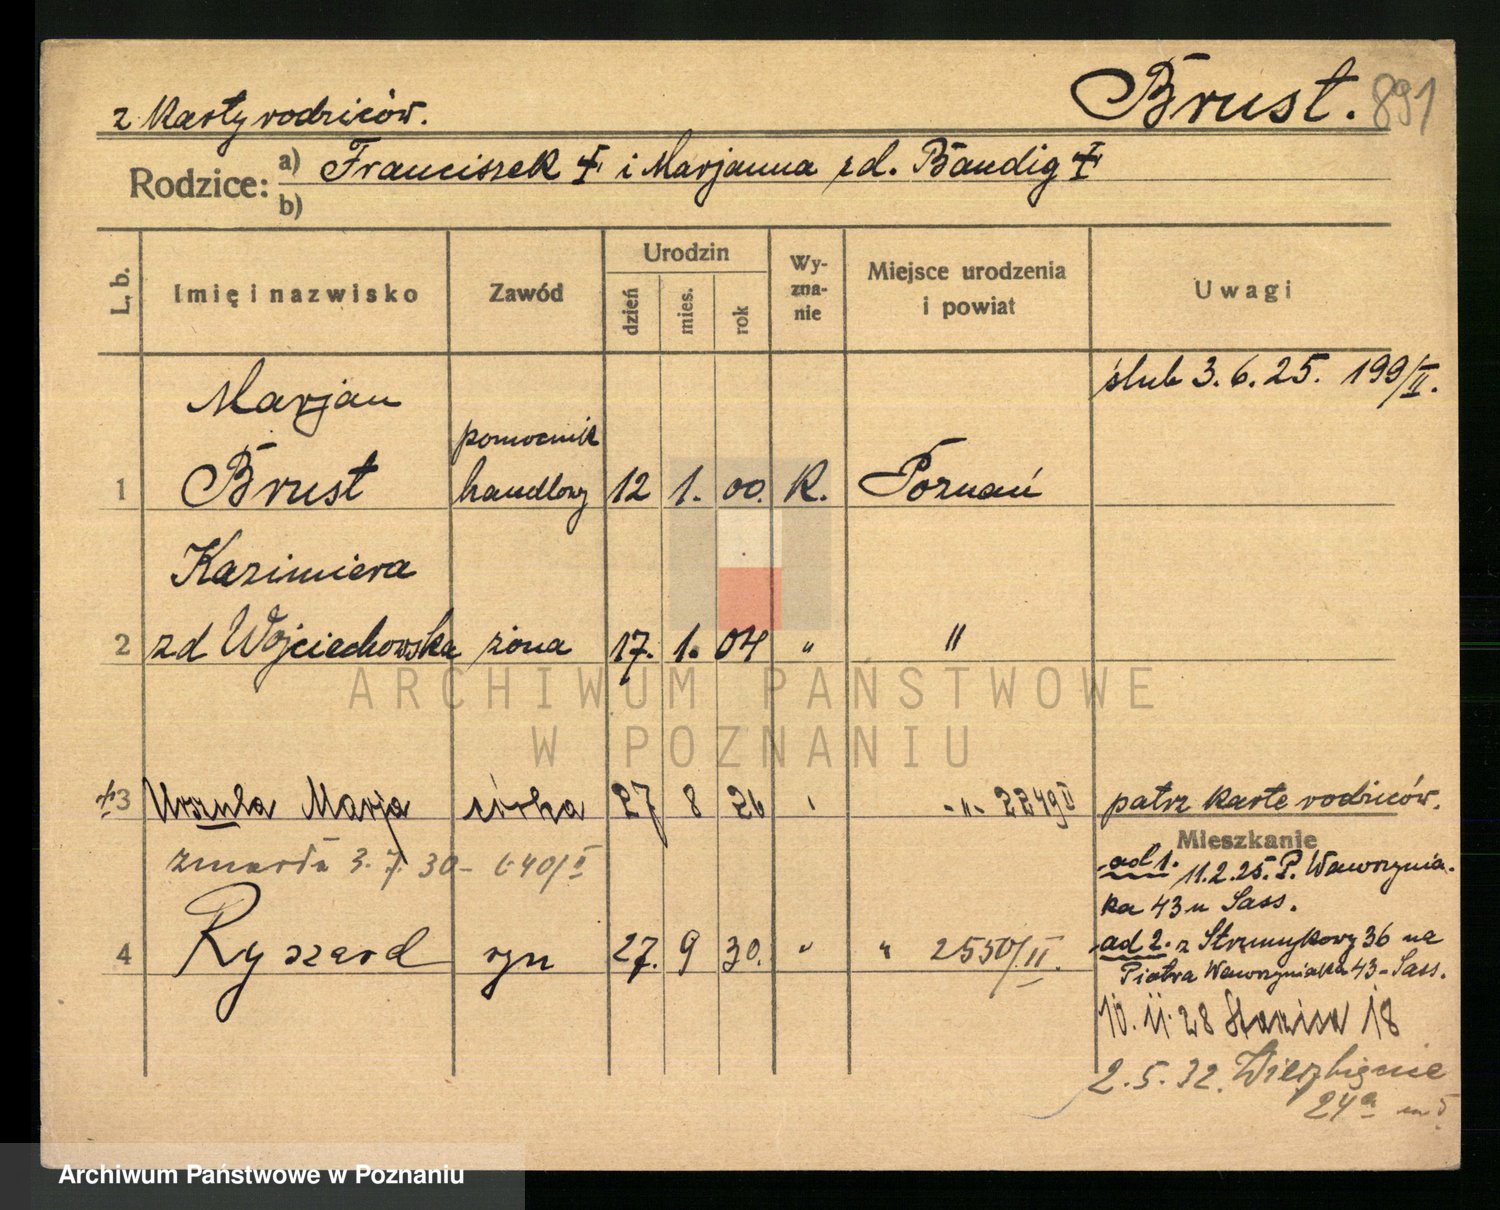 z Karty rodziców.
Brust. 891
Rodzice: a) Franciszek i Marjanna zd. Baudig
b)
L. b.
Imię i nazwisko
Zawód
Urodzin
dzień
mies.
rok
Wy-
zna-
nie
Miejsce urodzenia
i powiat
Uwagi
ślub 3.6.25. 199/II.
Marjan
pomocnik
1 Brust handlowy 12 1. 00. K. Poznań
Kazimiera
2 zd Wojciechowska żona 17. 1. 04 " "
ARCHIWUM PAŃSTWOWE
W POZNANIU
+3 Urszula Marja córka 27 8 26 " -"- 2249 II patrz karte rodziców.
zmarła 3.7.30 - 640/II
Mieszkanie
ad 1. 11.2.25. P. Wawrzynia-
ka 43 u Sass.
4 Ryszard syn 27. 9 30. " " 2550/II.
ad 2. z Strumykowy 36 na
Piotra Wawrzyniaka 43 - Sass.
10.11.28 18
2.5.32. Wierzbięcie
24a m5
Archiwum Państwowe w Poznaniu